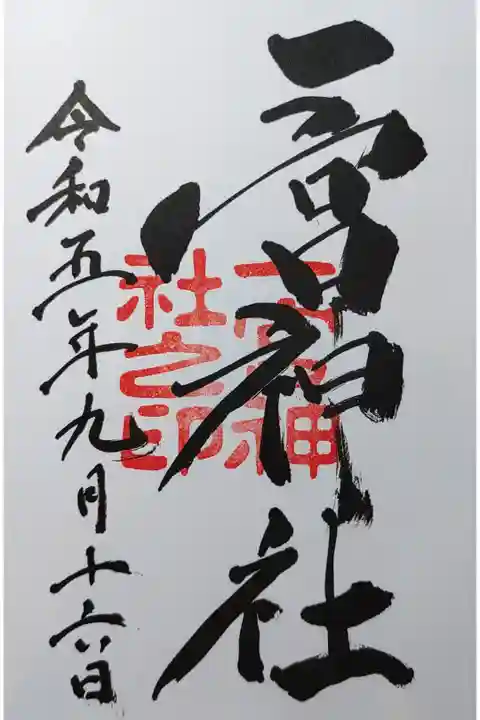 一宮神社
一宮神
社之印
令和五年九月十六日